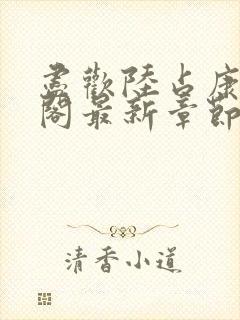 尽歡陸占康
閣最新章節
清香小道